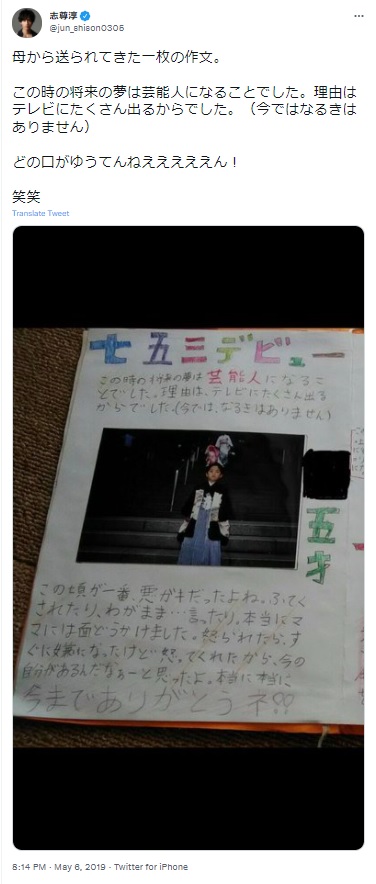 志尊淳
@jun_shison0305
母から送られてきた一枚の作文。
この時の将来の夢は芸能人になることでした。理由は
テレビにたくさん出るからでした。（今ではなるきは
ありません）
どの口がゆうてんねえええええん！
笑笑
Translate Tweet
七五三デビュー
この時の将来の夢は芸能人になるこ
とでした。理由は、テレビにたくさん出る
からでした。(今では、なるきはありません)
五才
この頃が一番、悪ガキだったよね。ふてく
されたり、わがまま…言ったり。本当にマ
マには面どうかけました。怒られたら、す
ぐに嫌になったけど怒ってくれたから、今の
自分があるんだなぁーと思ったよ。本当に本当に
今までありがとうネ!!
8:14 PM · May 6, 2019 · Twitter for iPhone